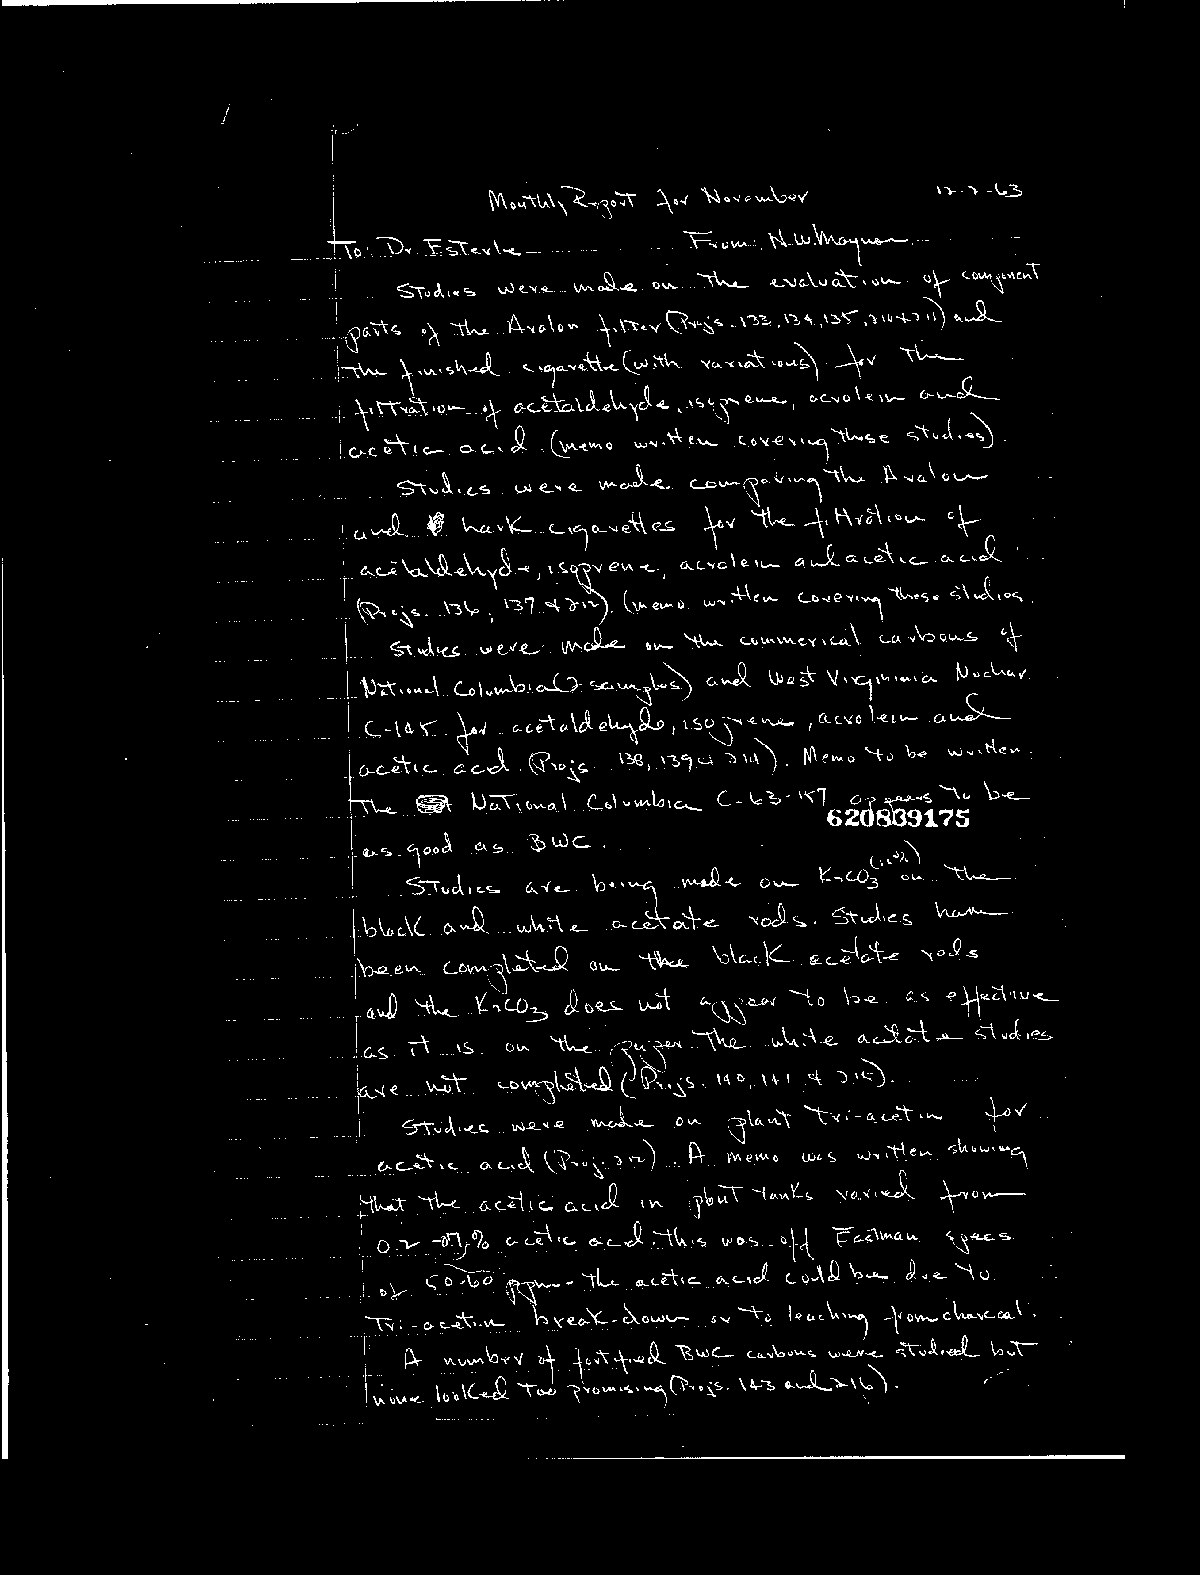 Monthly Report for November 12-2-63
To: Dr. Esterle From: N.W. Maynor
Studies were made on the evaluation of component
parts of the Avalon filter (Projs. 133, 134, 135, 210 & 211) and
the finished cigarette (with variations) for the
filtration of acetaldehyde, isoprene, acrolein and
acetic acid. (memo written covering these studies).
Studies were made comparing the Avalon
and Lark cigarettes for the filtration of
acetaldehyde, isoprene, acrolein and acetic acid
(Projs. 136, 137 & 212). (memo written covering these studies.
Studies were made on the commerical carbons of
National Columbia (2 samples) and West Virginnia Nuchar
C-145 for acetaldehyde, isoprene, acrolein and
acetic acid (Projs. 138, 139 & 214). Memo to be written.
The National Columbia C-63-157 appears to be
620809175
as good as BWC.
Studies are being made on K2CO3 on the
black and white acetate rods. Studies have
been completed on the black acetate rods
and the K2CO3 does not appear to be as effective
as it is on the paper. The white acetate studies
are not completed (Projs. 140, 141 & 215).
Studies were made on plant Tri-acetin for
acetic acid (Proj. 212). A memo was written showing
that the acetic acid in plant tanks varied from
0.2 % acetic acid. This was off Eastman specs
of 50-60 ppm. The acetic acid could be due to
Tri-acetin break-down or to leaching from charcoal.
A number of fortified BWC carbons were studied but
none looked too promising (Projs. 143 and 216).